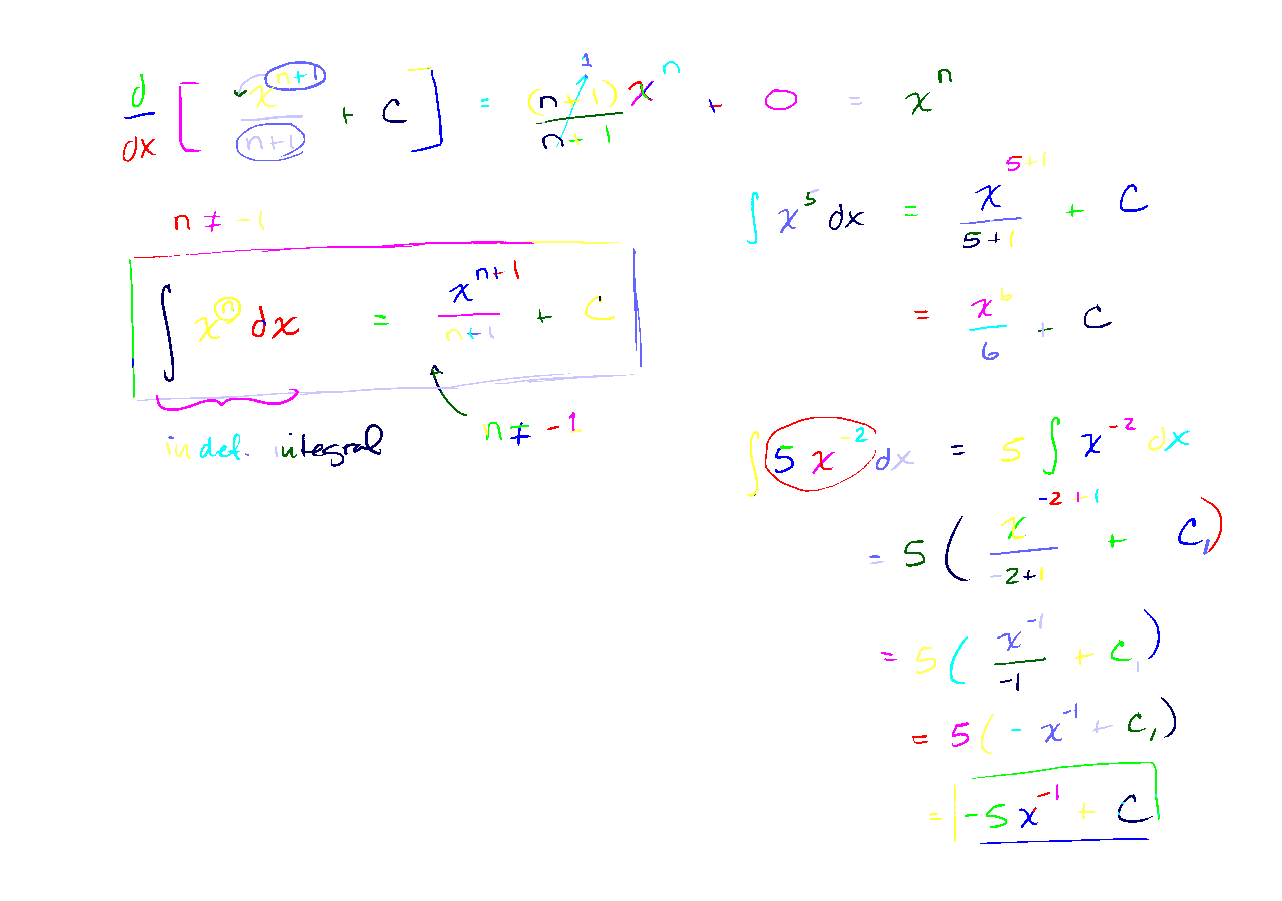 d/dx [ x^(n+1)/(n+1) + C ] = (n+1)x^n/(n+1) 1 + 0 = x^n
n ≠ -1
∫ x^n dx = x^(n+1)/(n+1) + C
n ≠ -1
indef. integral
∫ x^5 dx = x^(5+1)/(5+1) + C
= x^6/6 + C
∫ 5 x^-2 dx = 5 ∫ x^-2 dx
= 5 ( x^(-2+1)/(-2+1) + C₁ )
= 5 ( x^-1/-1 + C₁ )
= 5 ( - x^-1 + C₁ )
= -5x^-1 + C